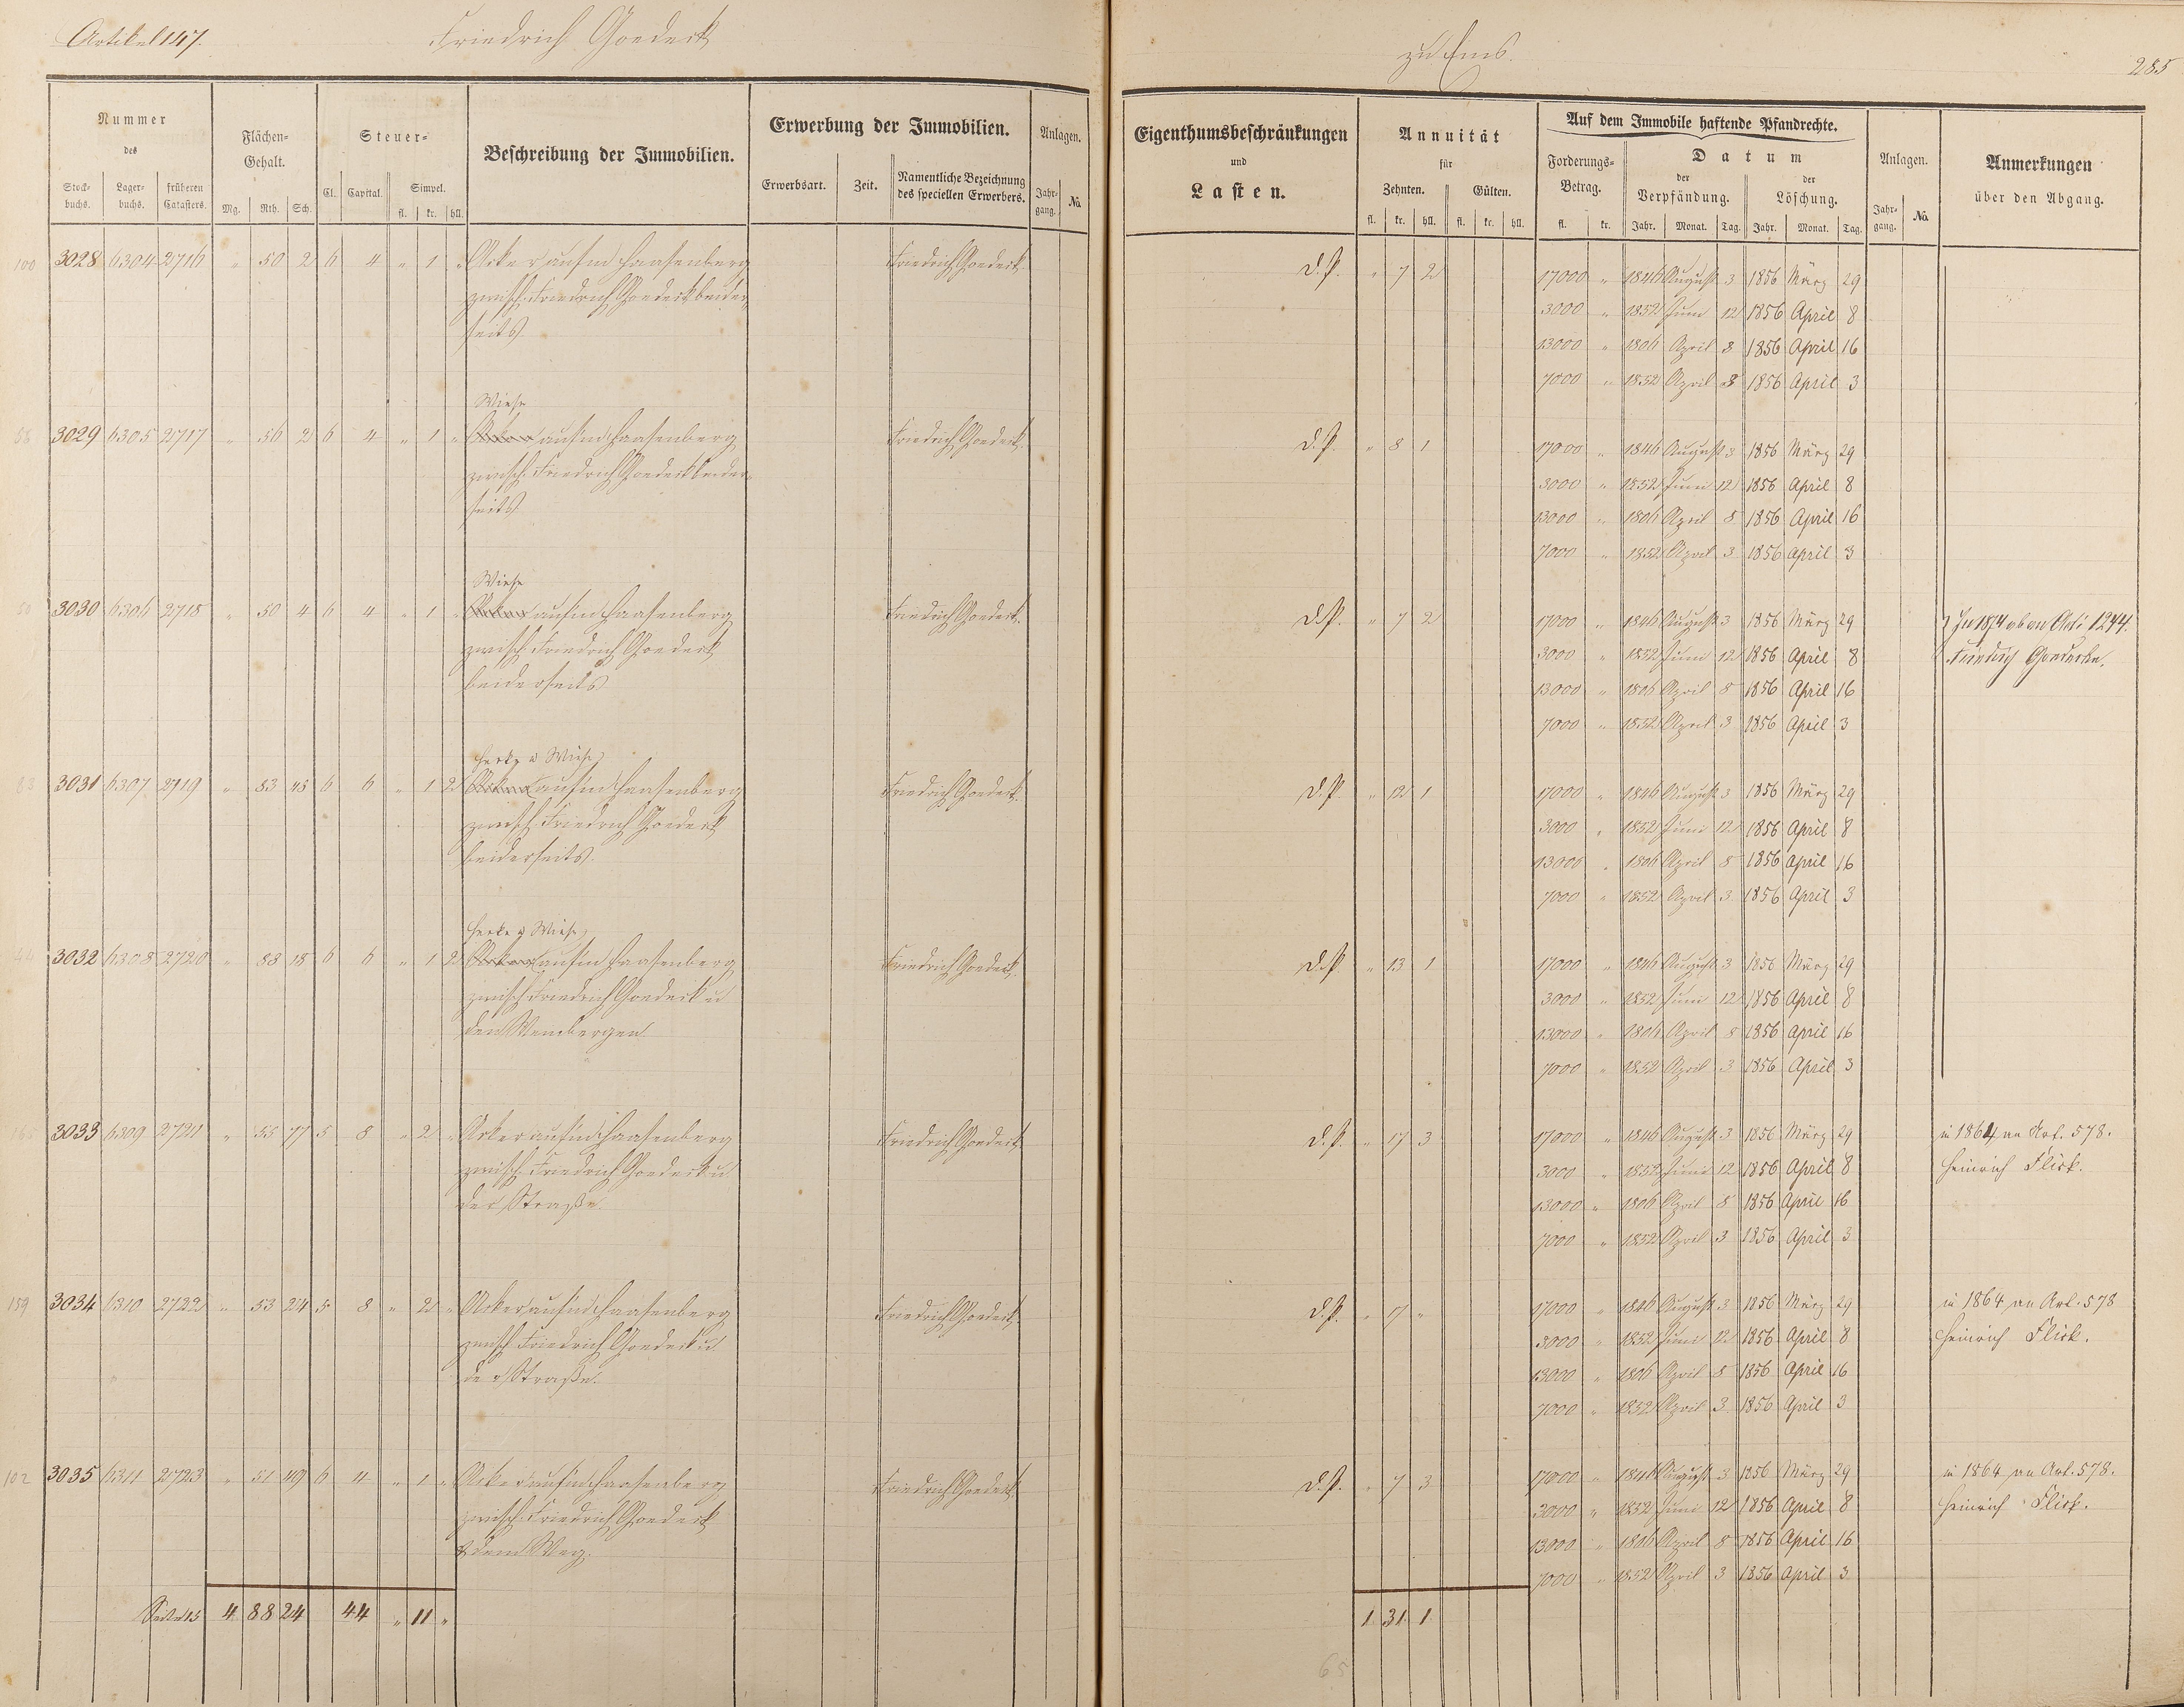 Artikel 147. Friedrich Goedeck zu Ems. 285
Nummer des
Stockbuchs. Lagerbuchs. früheren Catasters.
Flächen-Gehalt.
Mg. Rth. Sch.
Steuer-
Cl. Capital. Simpel.
fl. kr. hll.
Beschreibung der Immobilien.
Erwerbung der Immobilien.
Erwerbsart. Zeit. Namentliche Bezeichnung des speciellen Erwerbers.
Anlagen.
Jahrgang. No.
Eigenthumsbeschränkungen und Lasten.
Annuität für
Zehnten. Gülten.
fl. kr. hll. fl. kr. hll.
Auf dem Immobile haftende Pfandrechte.
Forderungs-Betrag.
fl. kr.
Datum
der Verpfändung. der Löschung.
Jahr. Monat. Tag. Jahr. Monat. Tag.
Anlagen.
Jahrgang. No.
Anmerkungen über den Abgang.
100 3028 6304 2716 " 50 2 6 4 " 1 " Acker aufm Haasenberg Friedrich Goedeck. d. P. " 7 2 17000 " 1846 August 3 1856 März 29
zwisch. Friedrich Goedeck beider- 3000 " 1852 Juni 12 1856 April 8
seits 13000 " 1806 April 8 1856 April 16
7000 " 1852 April 3 1856 April 3
Wiese
3029 6305 2717 " 56 2 6 4 " 1 " Acker aufm Haasenberg Friedrich Goedeck. d. P. " 8 1 17000 " 1846 August 3 1856 März 29
zwisch. Friedrich Goedeck beider- 3000 " 1852 Juni 12 1856 April 8
seits 13000 " 1806 April 8 1856 April 16
7000 " 1852 April 3 1856 April 3
Wiese
50 3030 6306 2718 " 50 4 6 4 " 1 " Acker aufm Haasenberg Friedrich Goedeck. d. P. " 7 2 17000 " 1846 August 3 1856 März 29 In 1874 an Art. 1244.
zwisch. Friedrich Goedeck 3000 " 1852 Juni 12 1856 April 8 Friedrich Goedecke.
beiderseits 13000 " 1806 April 8 1856 April 16
7000 " 1852 April 3 1856 April 3
Wiese
83 3031 6307 2719 " 83 48 6 6 " 1 2 Acker aufm Haasenberg Friedrich Goedeck. d. P. " 12 1 17000 " 1846 August 3 1856 März 29
zwisch. Friedrich Goedeck 3000 " 1852 Juni 12 1856 April 8
beiderseits. 13000 " 1806 April 8 1856 April 16
7000 " 1852 April 3 1856 April 3
Wiese
3032 6308 2720 " 88 18 6 6 " 1 2 Acker aufm Haasenberg Friedrich Goedeck. d. P. " 13 1 17000 " 1846 August 3 1856 März 29
zwisch. Friedrich Goedeck u 3000 " 1852 Juni 12 1856 April 8
den Weinbergen 13000 " 1806 April 8 1856 April 16
7000 " 1852 April 3 1856 April 3
3033 6309 2721 " 55 77 5 8 " 2 " Acker aufm Haasenberg Friedrich Goedeck d. P. " 17 3 17000 " 1846 August 3 1856 März 29 in 1864 an Art. 578.
zwisch. Friedrich Goedeck u 3000 " 1852 Juni 12 1856 April 8 Heinrich Flick.
der Straße. 13000 " 1806 April 8 1856 April 16
7000 " 1852 April 3 1856 April 3
159 3034 6310 2722 " 53 24 5 8 " 2 " Acker aufm Haasenberg Friedrich Goedeck. d. P. " 17 " 17000 " 1846 August 3 1856 März 29 in 1864 an Art. 578
zwisch. Friedrich Goedeck u 3000 " 1852 Juni 12 1856 April 8 Heinrich Flick.
der Straße. 13000 " 1806 April 8 1856 April 16
7000 " 1852 April 3 1856 April 3
102 3035 6311 2723 " 51 49 6 4 " 1 " Acker aufm Haasenberg Friedrich Goedeck. d. P. " 7 3 17000 " 1846 August 3 1856 März 29 in 1864 an Art. 578.
zwisch. Friedrich Goedeck 3000 " 1852 Juni 12 1856 April 8 Heinrich Flick.
& dem Weg. 13000 " 1806 April 8 1856 April 16
7000 " 1852 April 3 1856 April 3
4 88 24 44 " 11 " 1 31 1
65